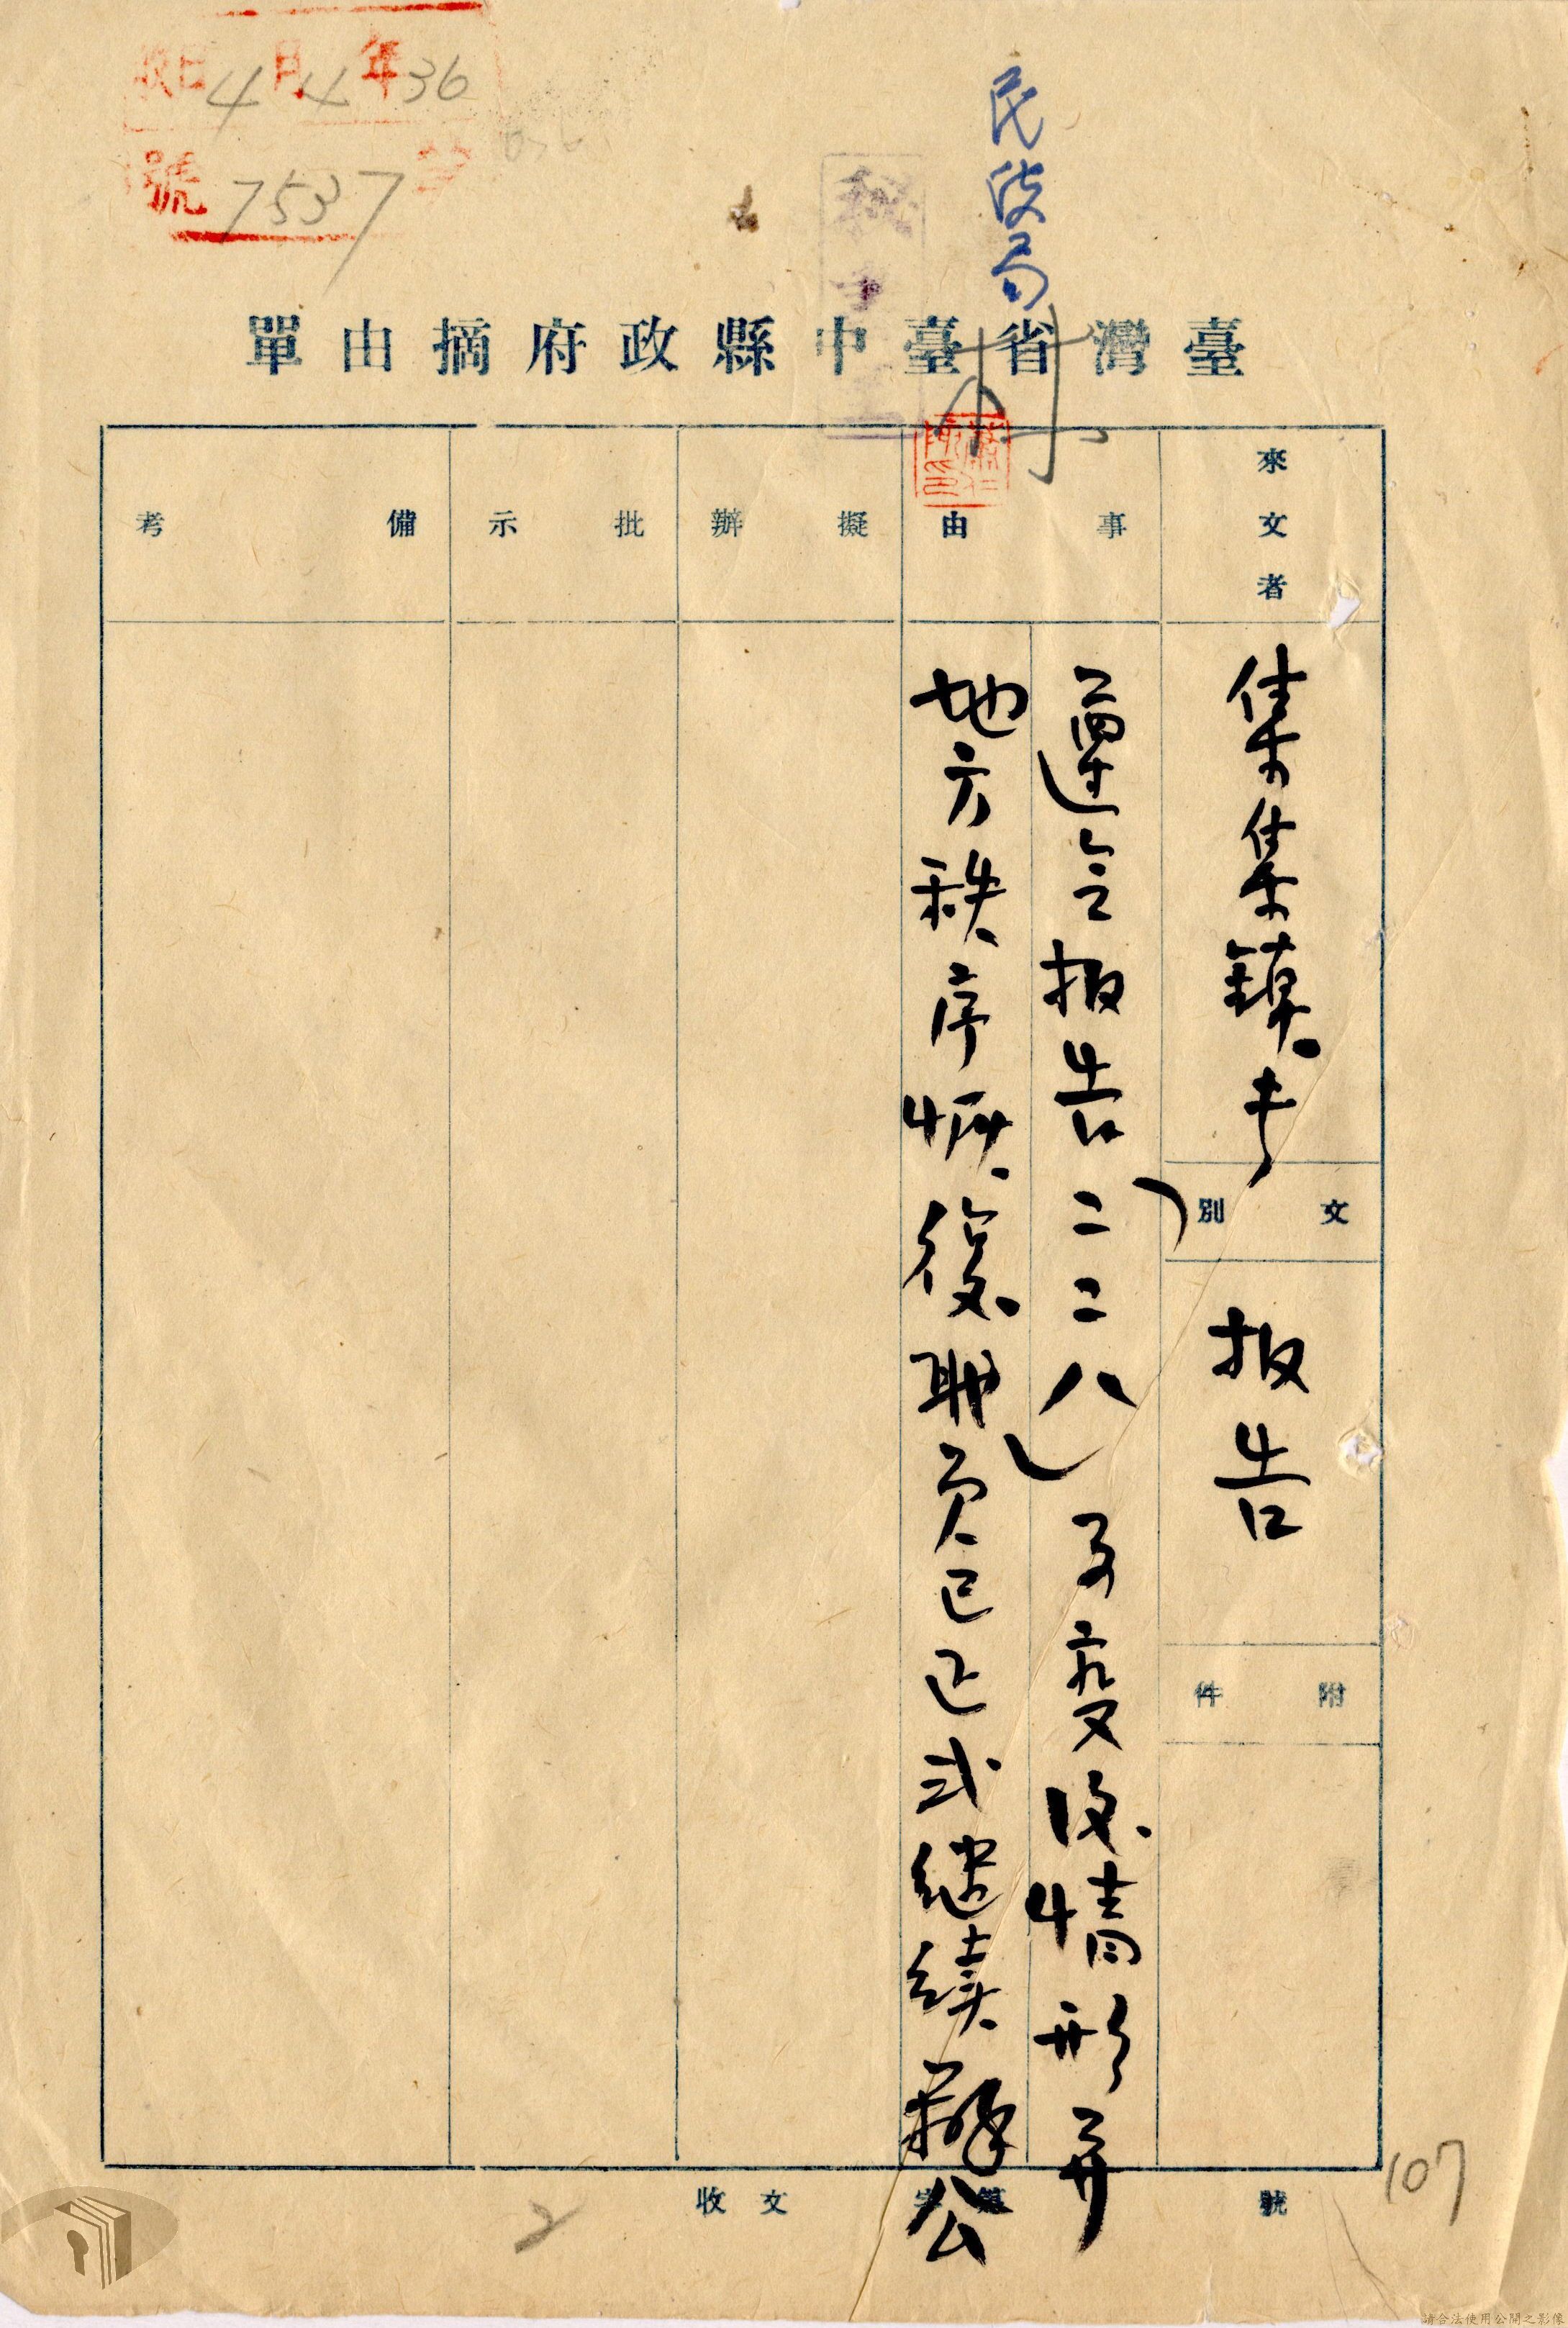 收日4月4年36
號7537
民政局
秘書室
臺灣省臺中縣政府摘由單
來文者
事由
擬辦
批示
備考
集集鎮長
文別
報告
附件
遵令報告(二二八)事變後情形并
地方秩序恢復職員已正式繼續辦公
收文 字第 號
107
2
請合法使用公開之影像